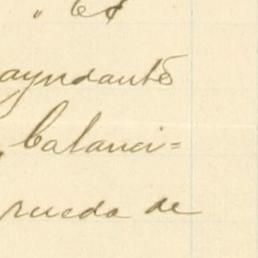 ayudantes
balanci=
rueda de